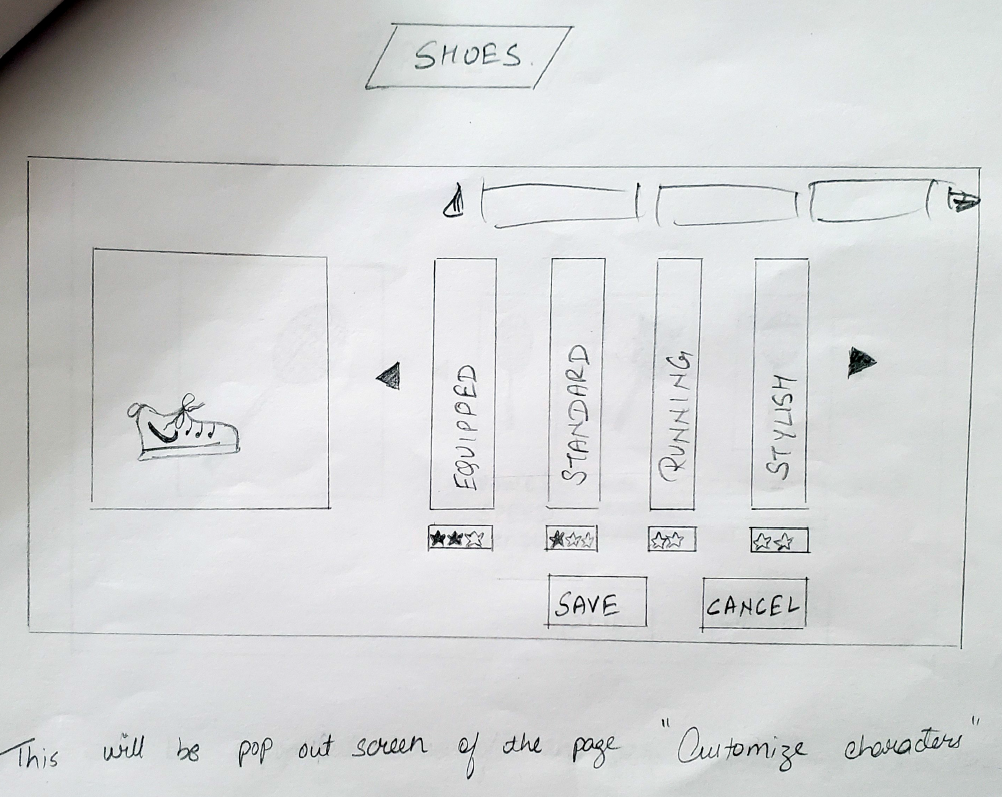 SHOES.
EQUIPPED
STANDARD
RUNNING
STYLISH
SAVE
CANCEL
This will be pop out screen of the page "Customize characters"